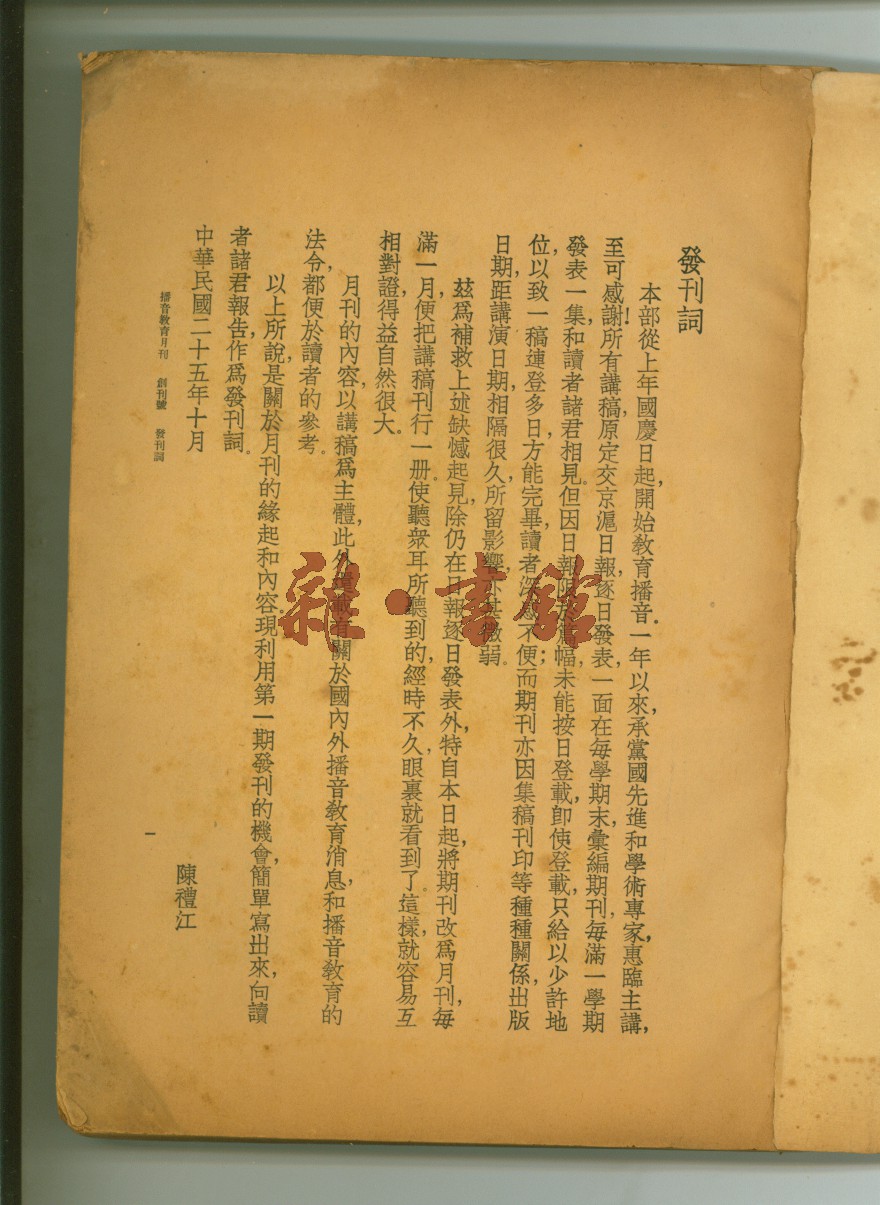 發刊詞
本部從上年國慶日起，開始教育播音．一年以來，承黨國先進和學術專家，惠臨主講，
至可感謝！所有講稿，原定交京滬日報，逐日發表，一面在每學期末，彙編期刊，每滿一學期
發表一集，和讀者諸君相見。但因日報限於篇幅，未能按日登載，卽使登載，只給以少許地
位，以致一稿連登多日，方能完畢，讀者深感不便；而期刊亦因集稿刊印等種種關係，出版
日期，距講演日期，相隔很久，所留影響，亦甚微弱。
茲爲補救上述缺憾起見，除仍在日報逐日發表外，特自本日起，將期刊改爲月刊，每
滿一月，便把講稿刊行一册。使聽衆耳所聽到的，經時不久，眼裏就看到了。這樣，就容易互
相對證，得益自然很大。
月刊的內容，以講稿爲主體，此外還載有關於國內外播音教育消息，和播音教育的
法令，都便於讀者的參考。
以上所說，是關於月刊的緣起和內容。現利用第一期發刊的機會，簡單寫出來，向讀
者諸君報告，作爲發刊詞。
中華民國二十五年十月
陳禮江
播音教育月刊 創刊號 發刊詞
一
雜·書館